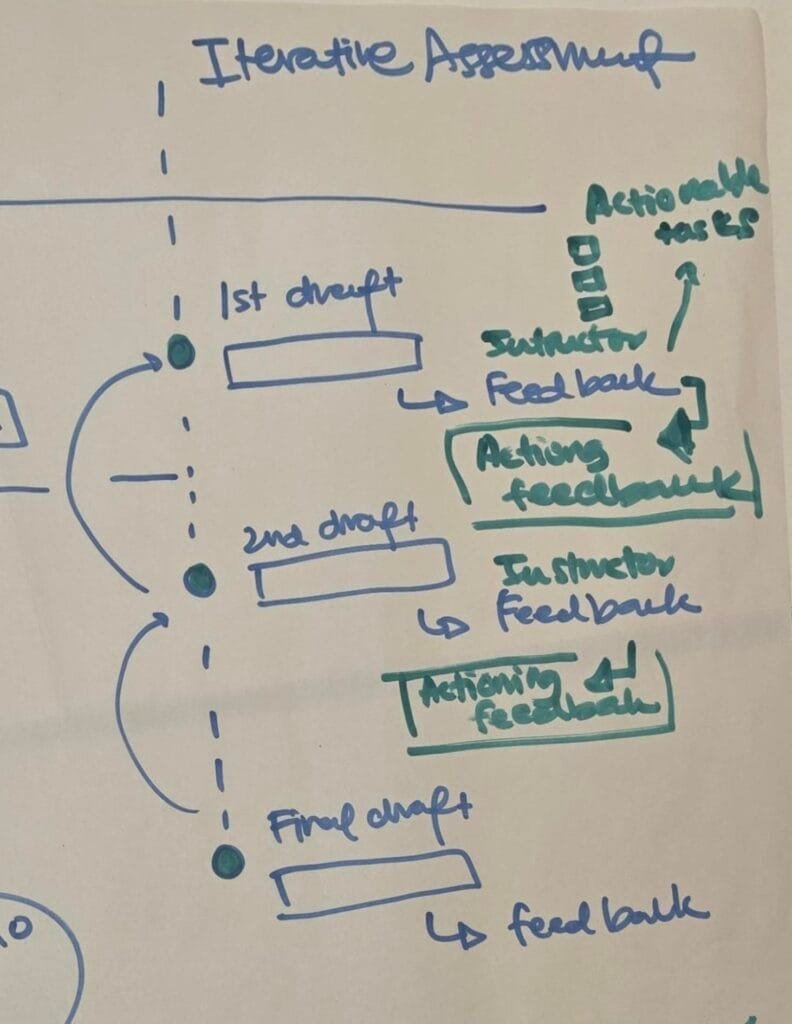 Iterative Assessment
Actionable
tasks
1st draft
Intructor
Feedback
Actiong
feedbauk
2nd draft
Instructor
Feedback
Actioning
feedback
Final draft
feedback